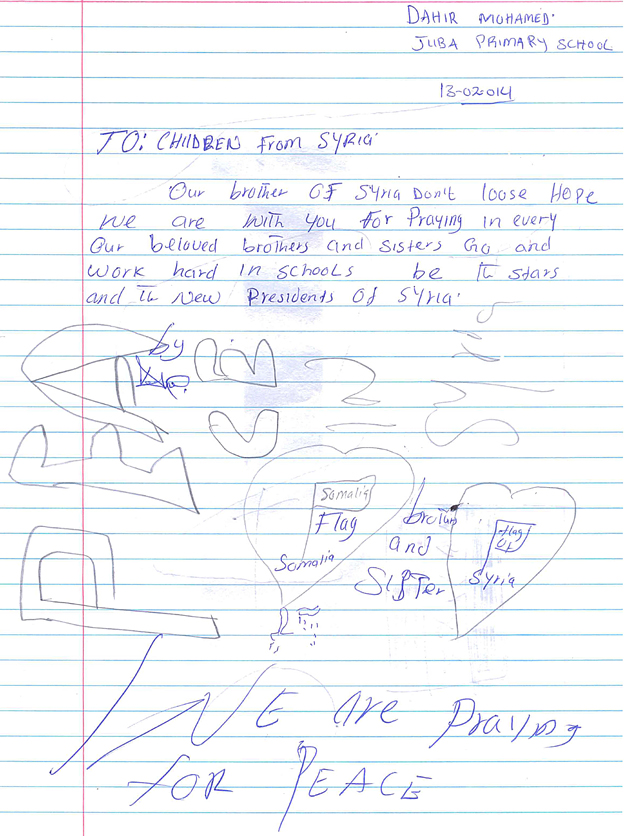 DAHIR MOHAMED.
JUBA PRIMARY SCHOOL
13-02014
TO: CHILDREN from SYRIA.
Our brother OF SYRIA Don't loose HOPE
we are with you for Praying in every
Our beloved brothers and sisters Go and
work hard in schools be th stars
and th New Presidents Of SYria.
by
Somalia
Flag
Somalia
and
SISTer
flag
Of
Syria
WE are Praying
for PEACE